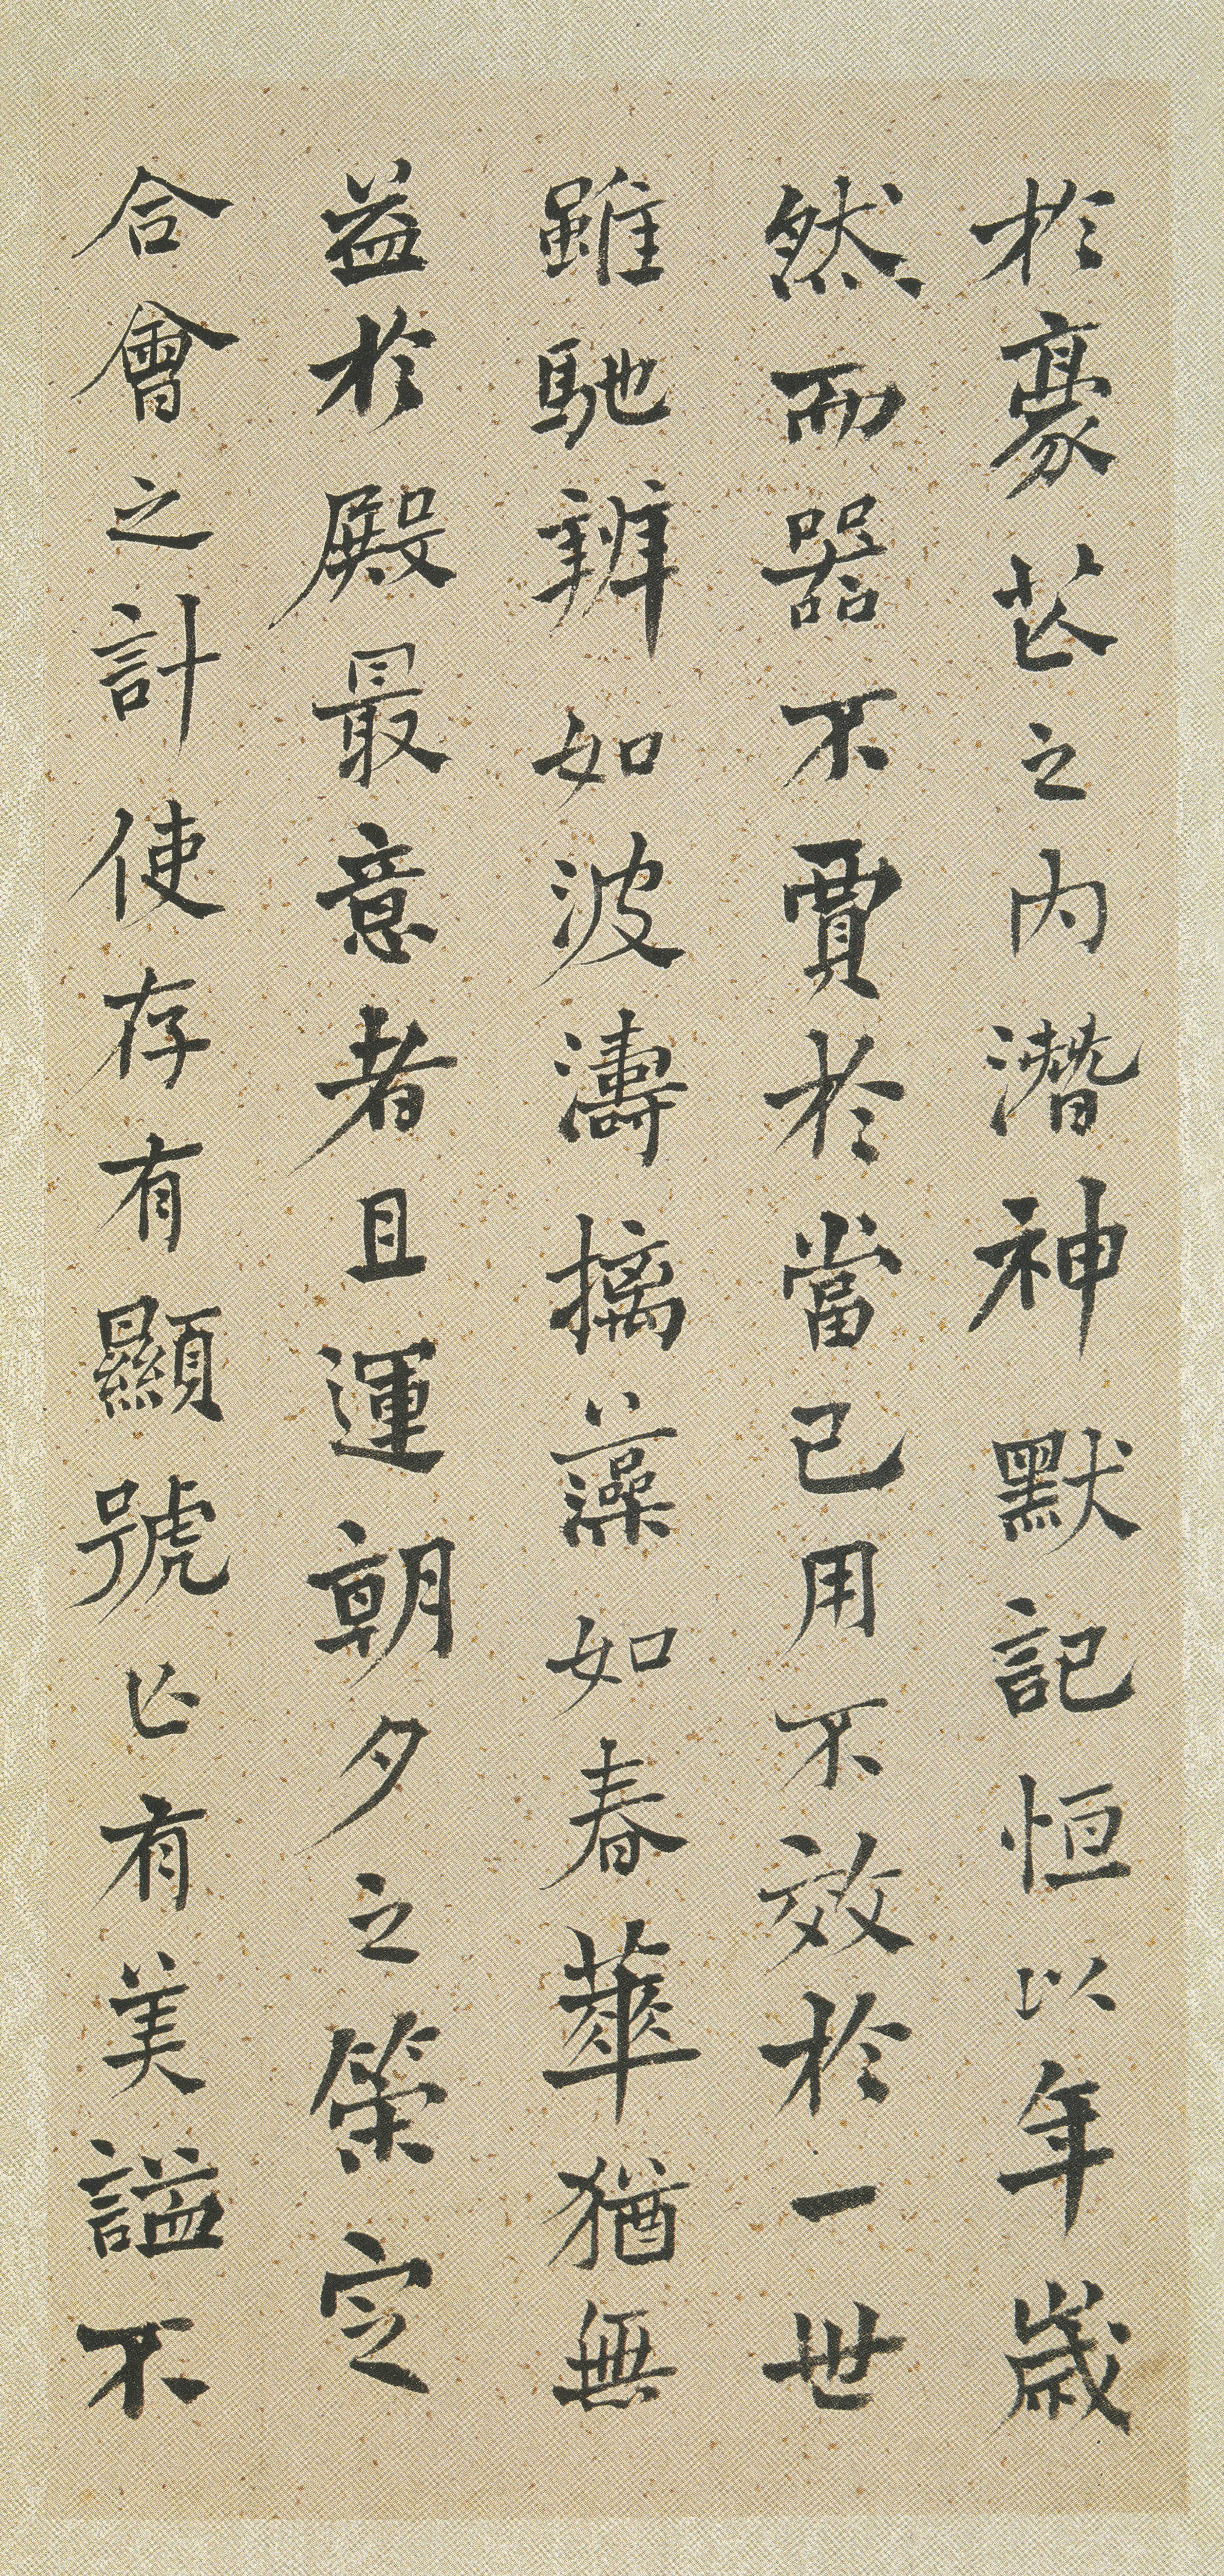 於豪芒之內潛神默記恒以年歲
然而器不賈於當己用不效於一世
雖馳辨如波濤摛藻如春華猶無
益於殿最意者且運朝夕之策定
合會之計使存有顯號亡有美謚不